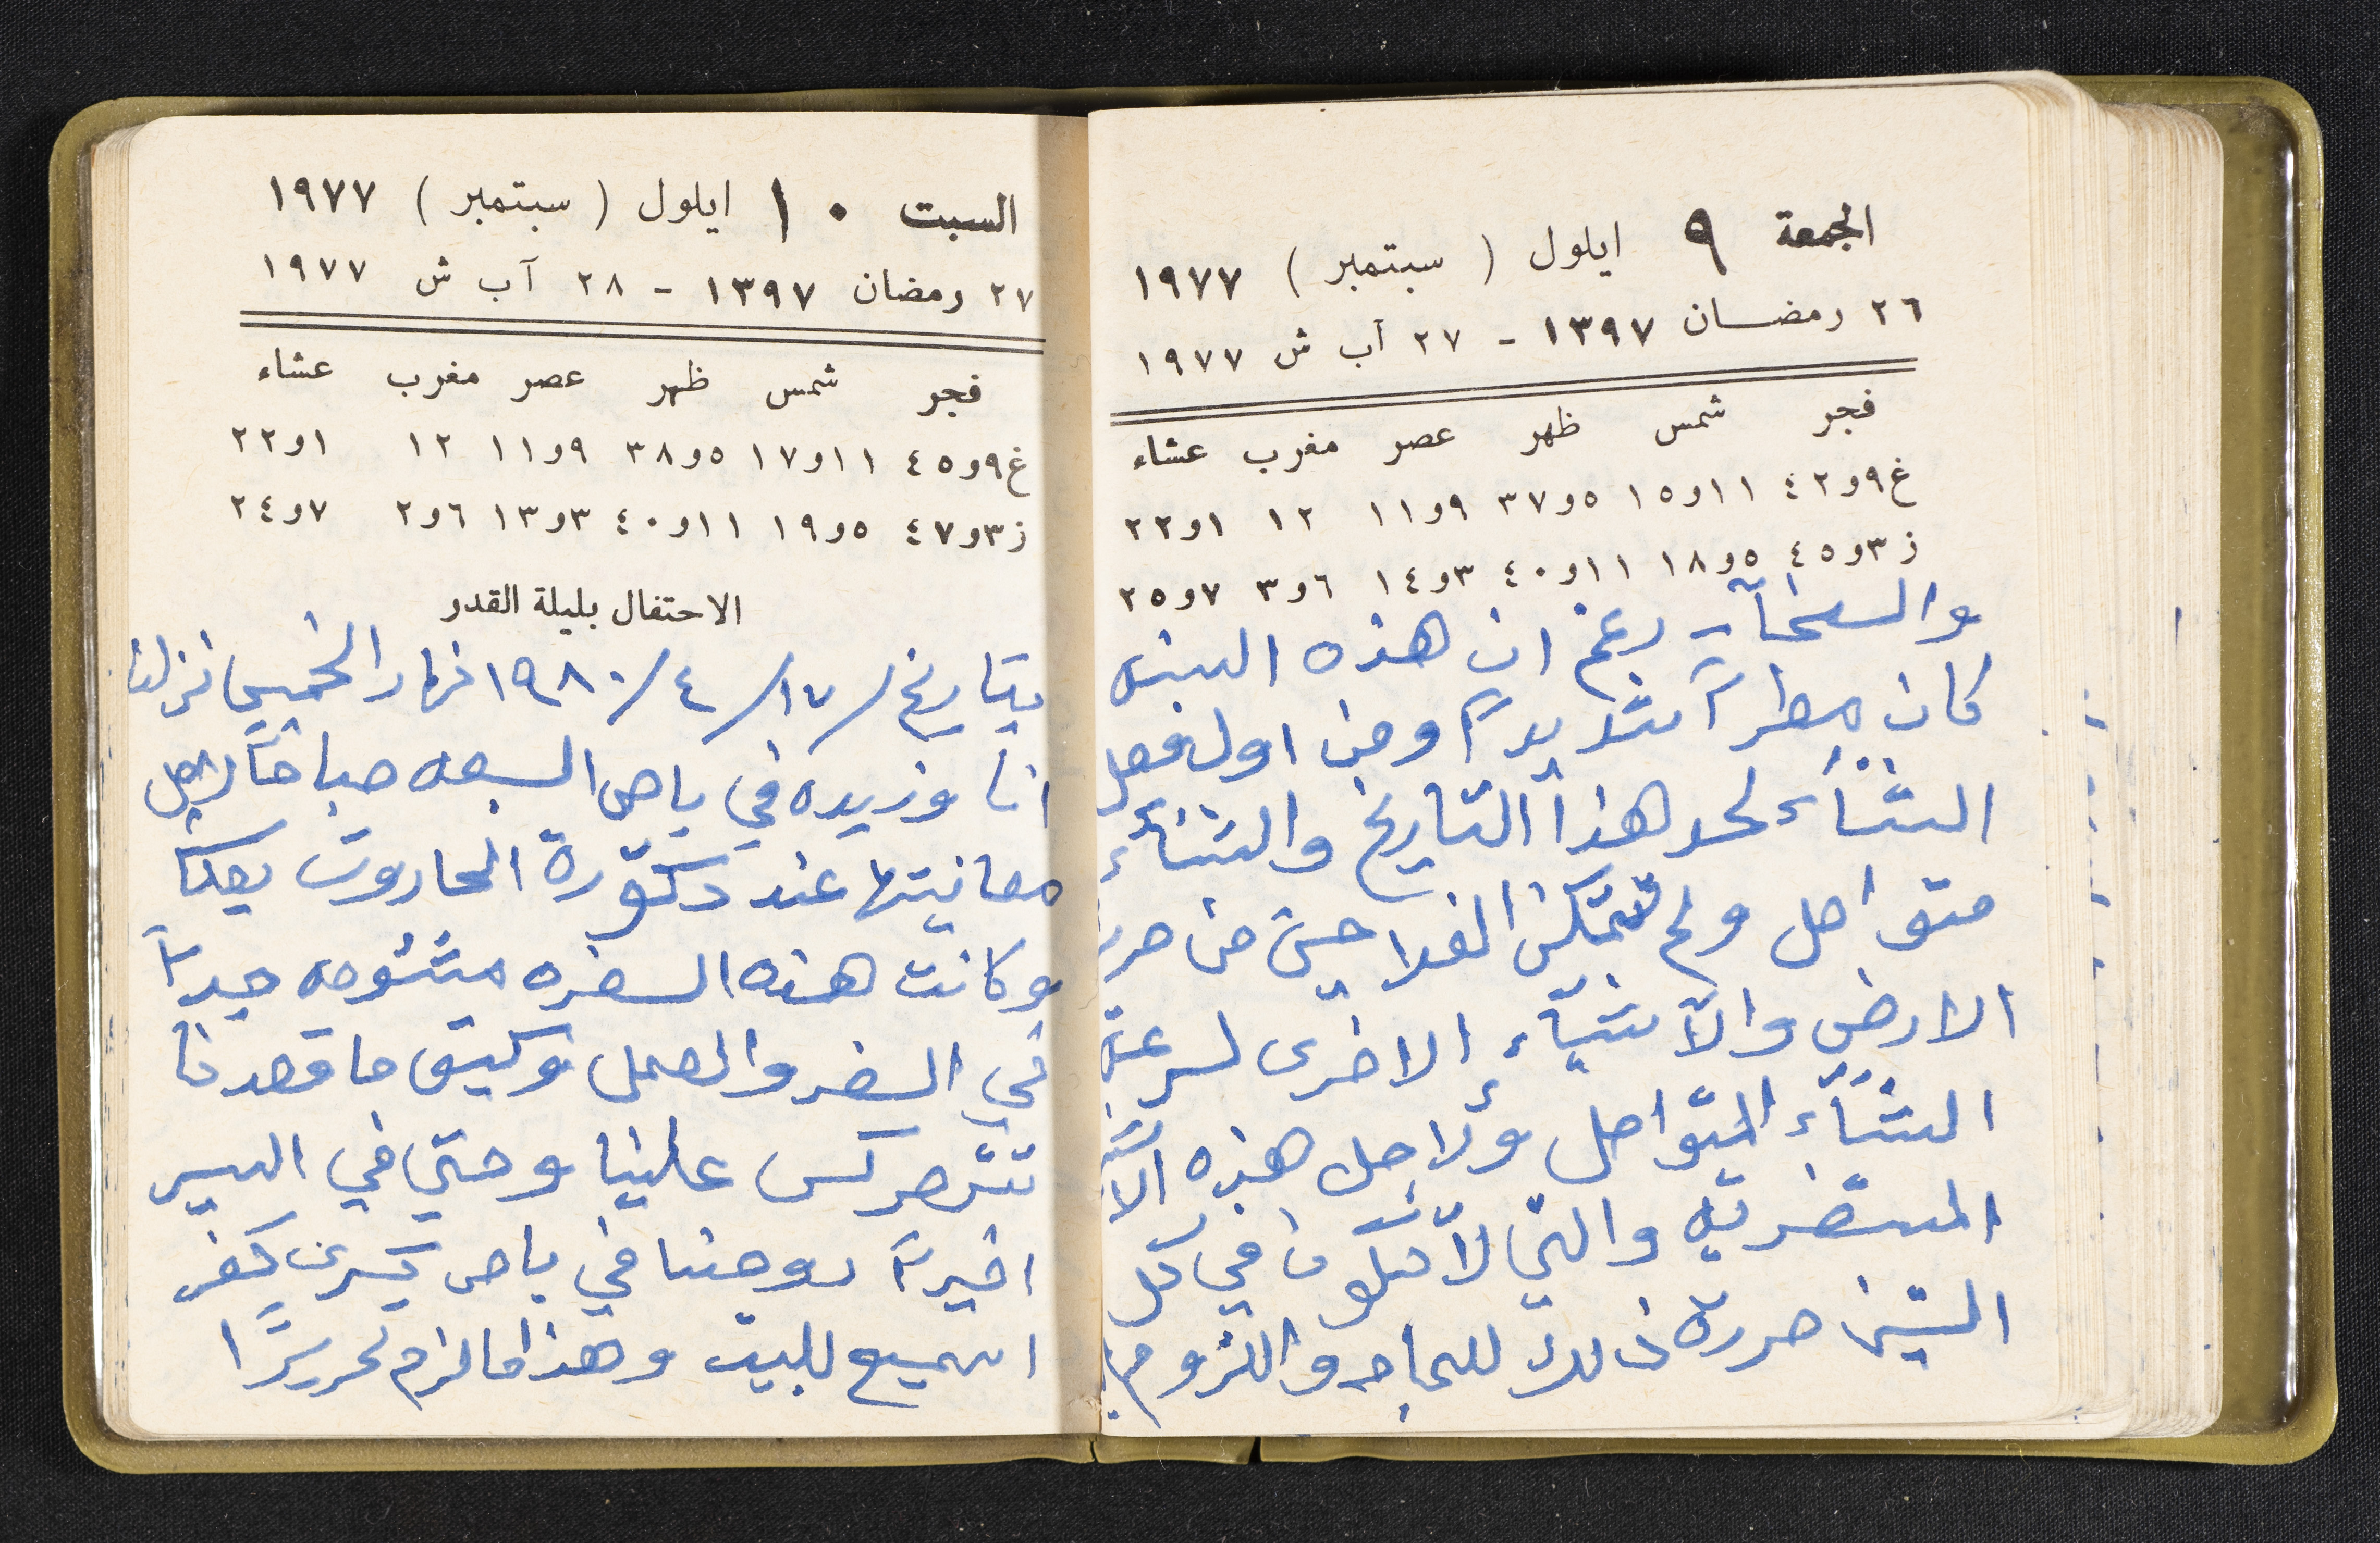 الجمعة ٩ ايلول (سبتمبر) ١٩٧٧
٢٦ رمضان ١٣٩٧ - ٢٧ آب ش ١٩٧٧
فجر شمس ظهر عصر مغرب عشاء
غ ٩و٤٢ ١١و١٥ ٥و٣٧ ٩و١١ ١٢ ١و٢٢
ز ٣و٤٥ ٥و١٨ ١١و٤٠ ٣و١٤ ٦و٣ ٧و٢٥
رغم ان هذه السنه
كان مطراً شديداً ومن اول فصل
الشتاء لحد هذا التاريخ والشتاء
متواصل ولم تتمكن الفلاحين من حرث
الارض والاشياء الاخرى لسرعة
الشتاء المتواصل ولاجل هذه
والتي لا تكون في كل
السنين حررت ذلك للحاجه واللزوم
السبت ١٠ ايلول (سبتمبر) ١٩٧٧
٢٧ رمضان ١٣٩٧ - ٢٨ آب ش ١٩٧٧
فجر شمس ظهر عصر مغرب عشاء
غ ٩و٤٥ ١١و١٧ ٥و٣٨ ٩و١١ ١٢ ١و٢٢
ز ٣و٤٧ ٥و١٩ ١١و٤٠ ٣و١٣ ٦و٢ ٧و٢٤
الاحتفال بليلة القدر
بتاريخ ١٧/٤/١٩٨٠ نهار الخميس نزلنا
انا وزيده في باص السبعه صباحاً لاجل
معانيتها عند دكتورة الحاروت بعكا
وكانت هذه السفره مشئومه جداً
في السفر والعمل وكيف ما قصدنا
تتصركس علينا وحتى في السير
اخيراً روحنا في باص يسرى كفر
اسميع للبيت وهذا ما لزم تحريراً